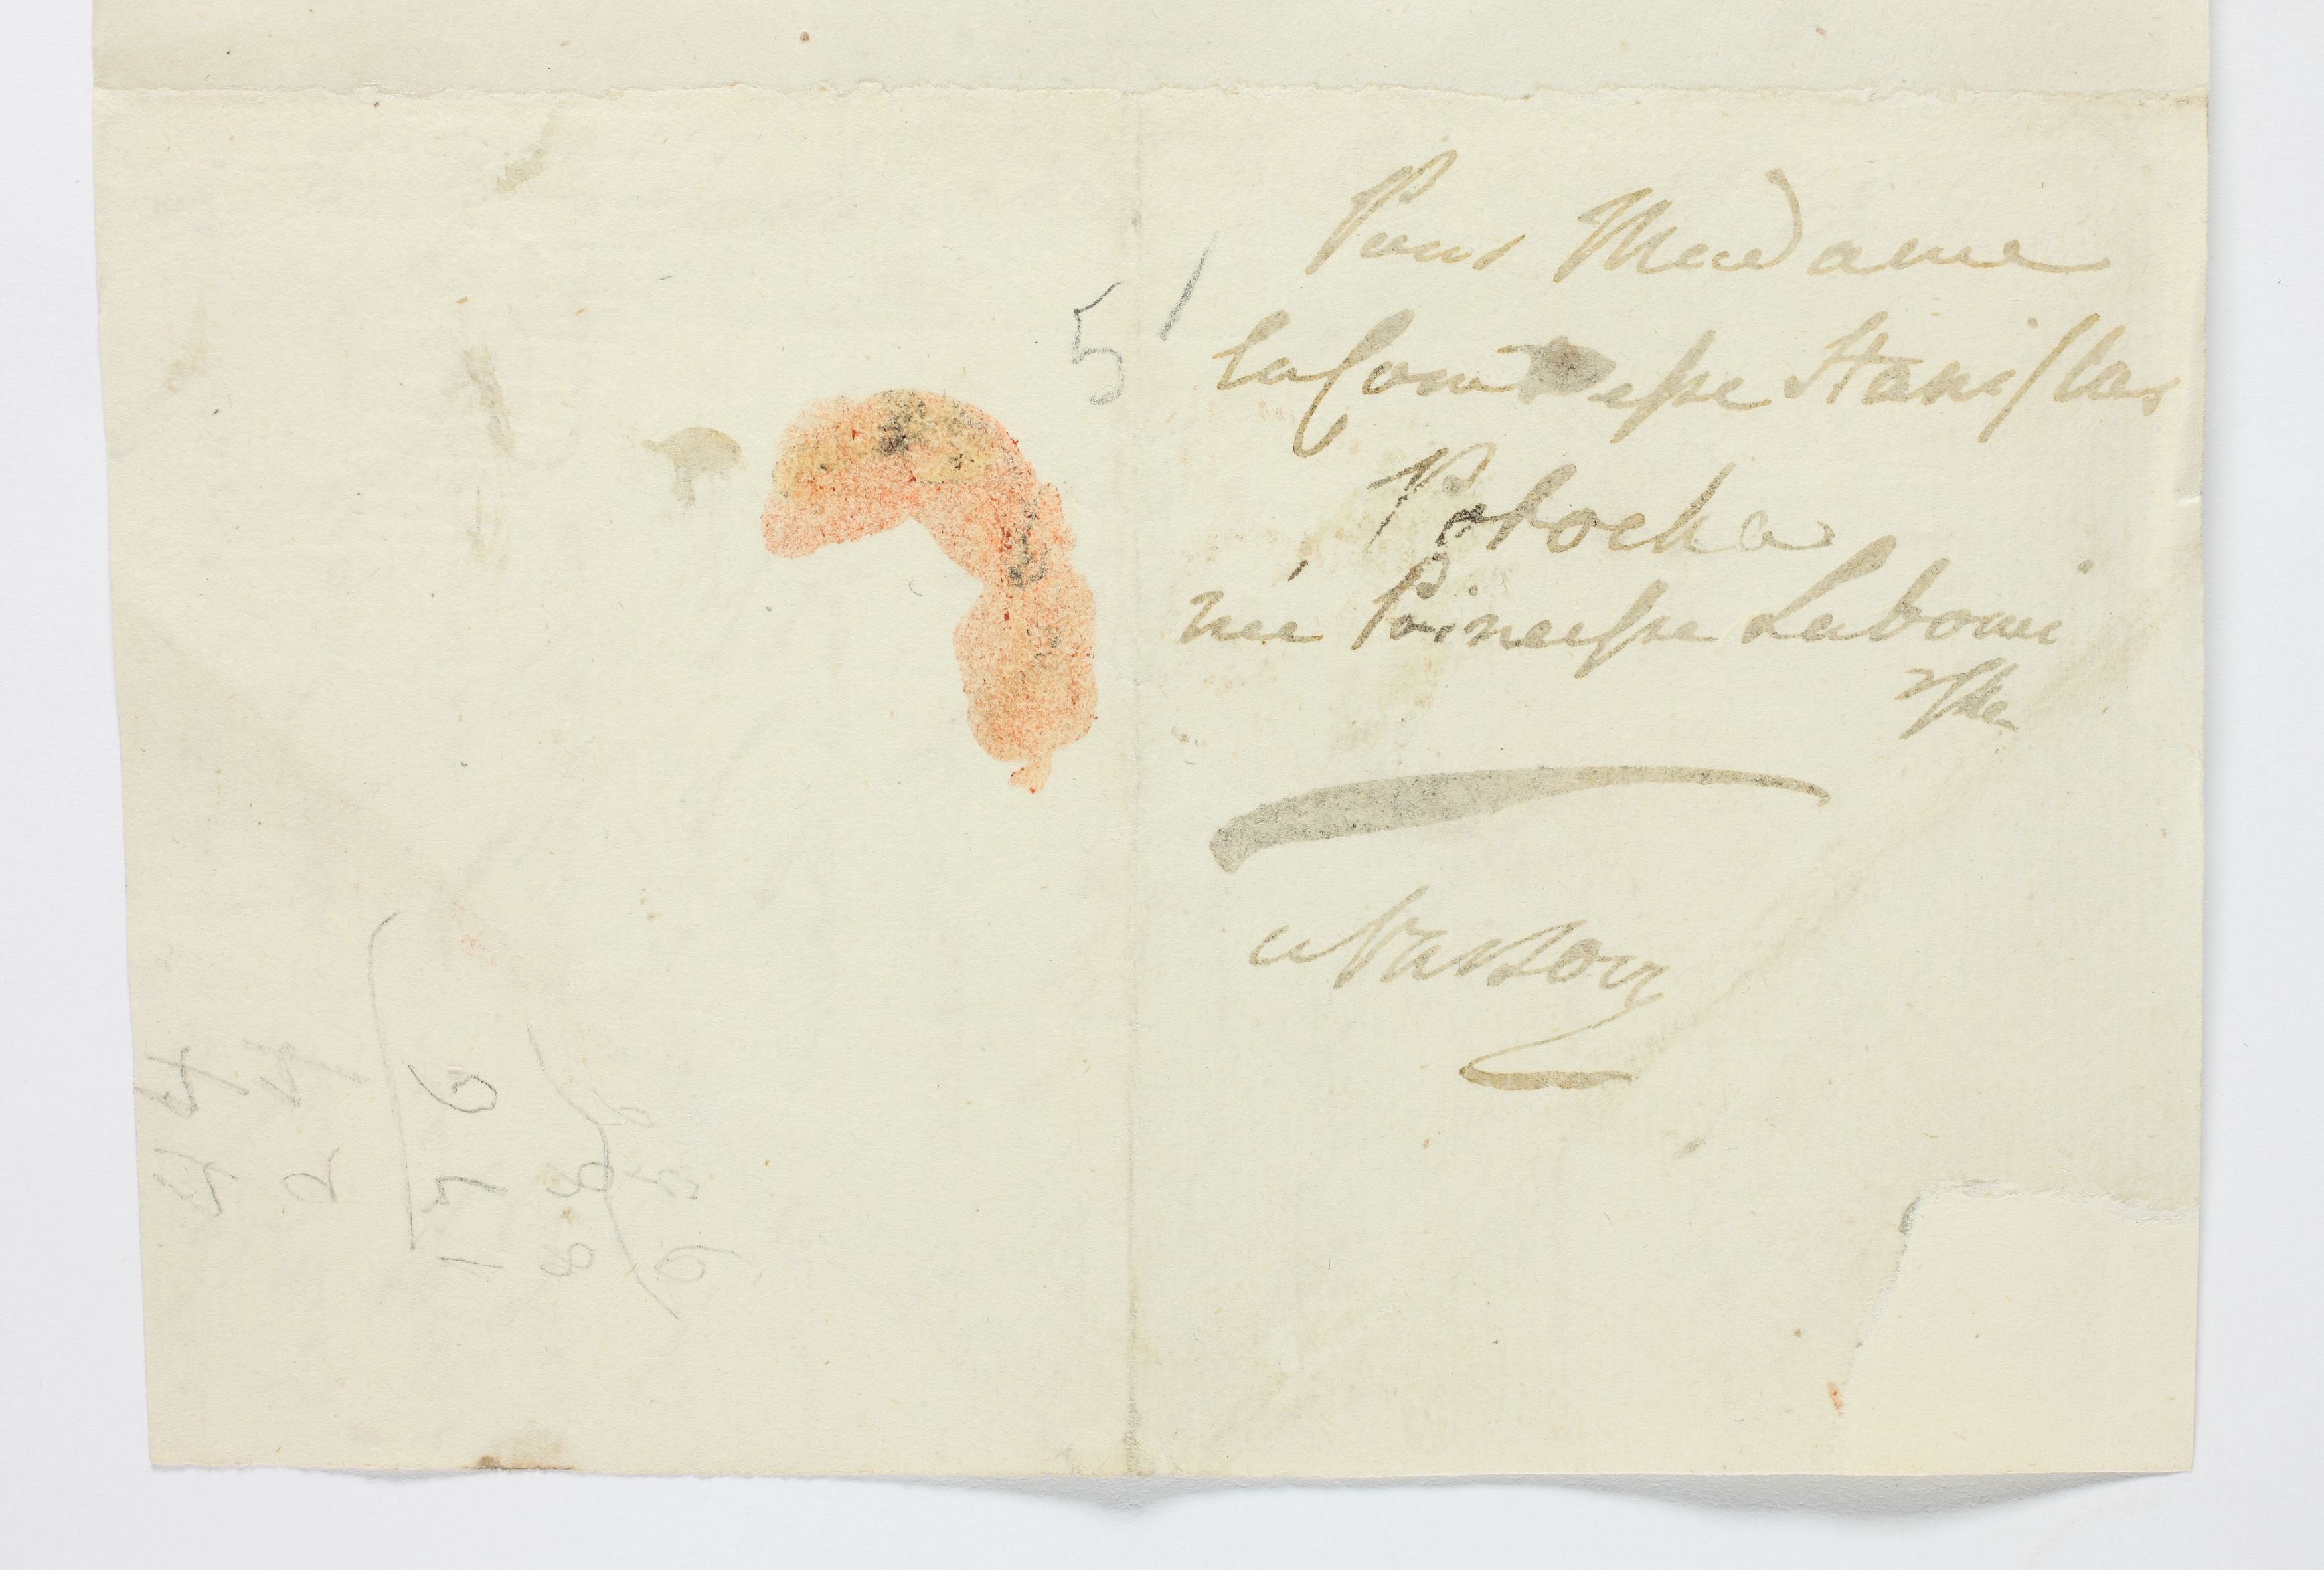 Pour Madame
la Comtesse Stanislas
Potocka
née Princesse Lubomi
rska
a Varsovie
5